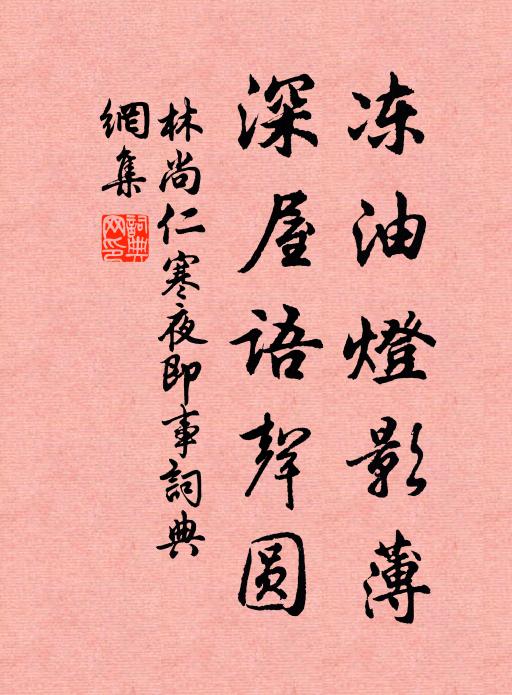 冻油燈影薄
深屋語聲圆
林尚仁寒夜即事詞典
網集
詞典
网印